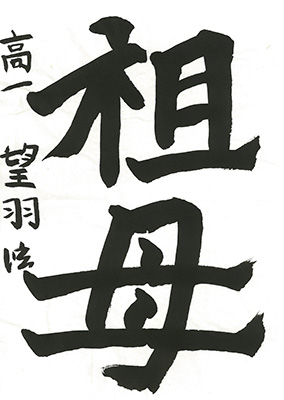 祖母
高一 望羽